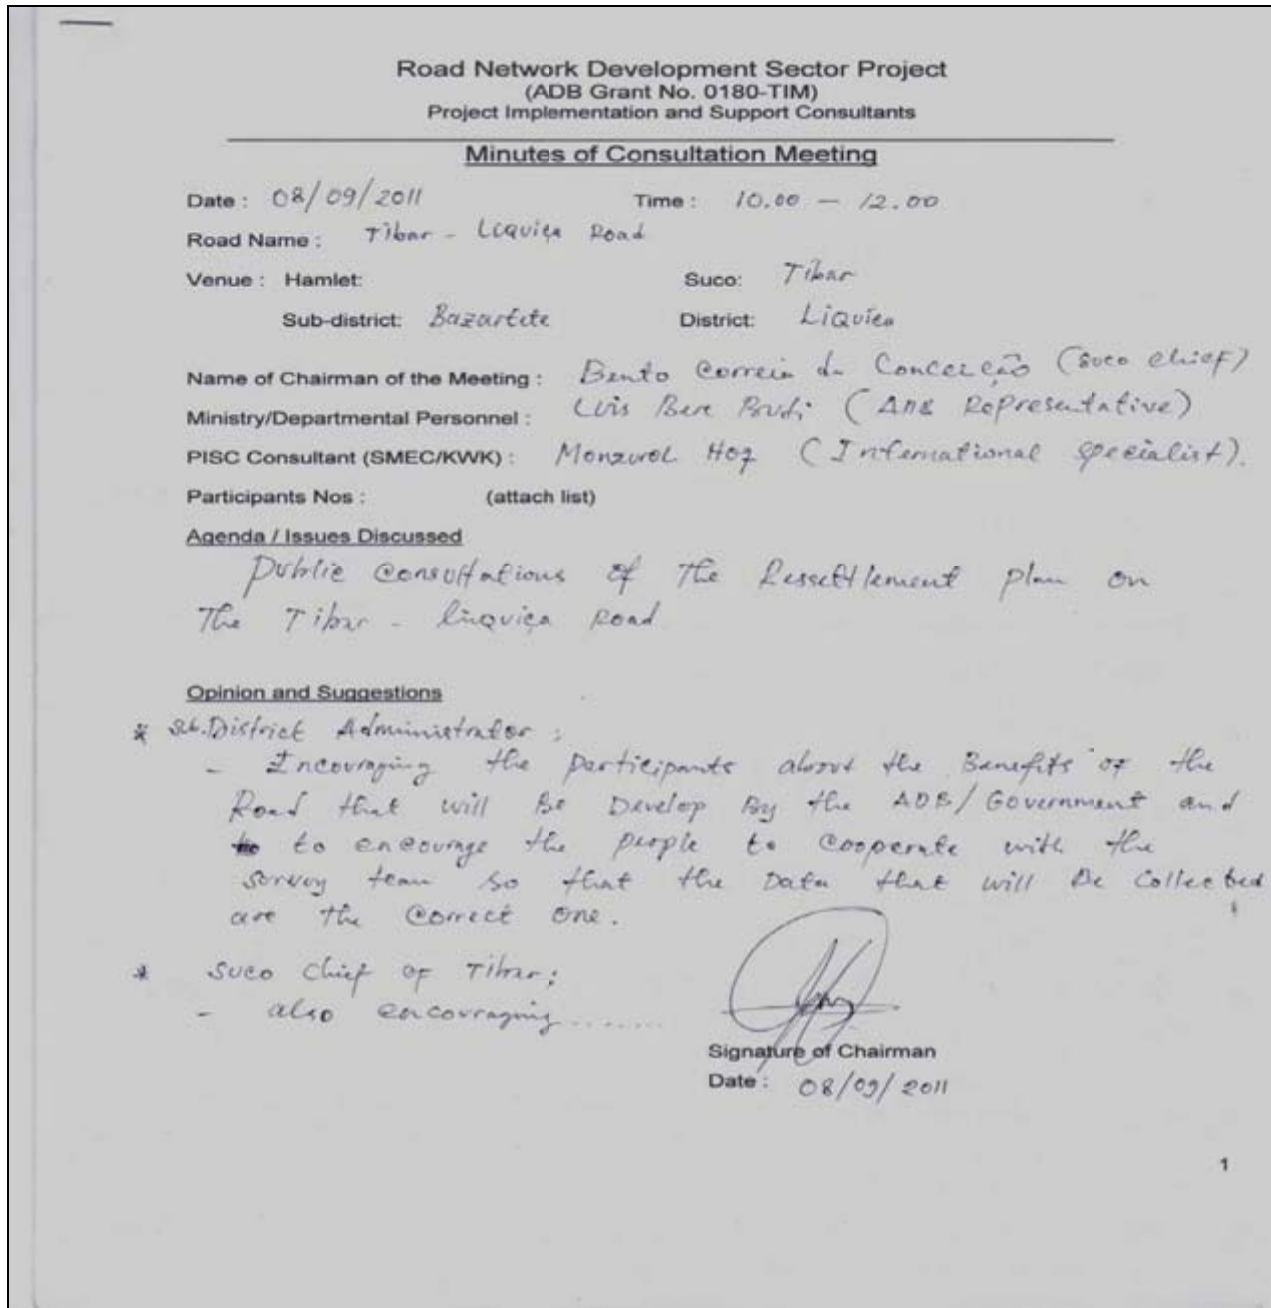 Road Network Development Sector Project
(ADB Grant No. 0180-TIM)
Project Implementation and Support Consultants
Minutes of Consultation Meeting
Date : 08/09/2011 Time : 10.00 – 12.00
Road Name : Tibar - Liquiça Road
Venue : Hamlet: Suco: Tibar
Sub-district: Bazartete District: Liquiça
Name of Chairman of the Meeting : Bento Correia da Conceicão (Suco chief)
Ministry/Departmental Personnel : Luis Bere (ADB Representative)
PISC Consultant (SMEC/KWK) : Monzurol Hoq (International Specialist).
Participants Nos : (attach list)
Agenda / Issues Discussed
Public Consultations of The Ressettlement plan on
The Tibar - Liquiça Road
Opinion and Suggestions
* Sub.District Administrator :
- Incouraging the participants about the Benefits of the
Road that will Be Develop By the ADB/Government and
to encourage the people to cooperate with the
Survey team so that the Data that will Be Collected
are the Correct one.
* Suco Chief of Tibar;
- also encouraging........
Signature of Chairman
Date : 08/09/2011
1